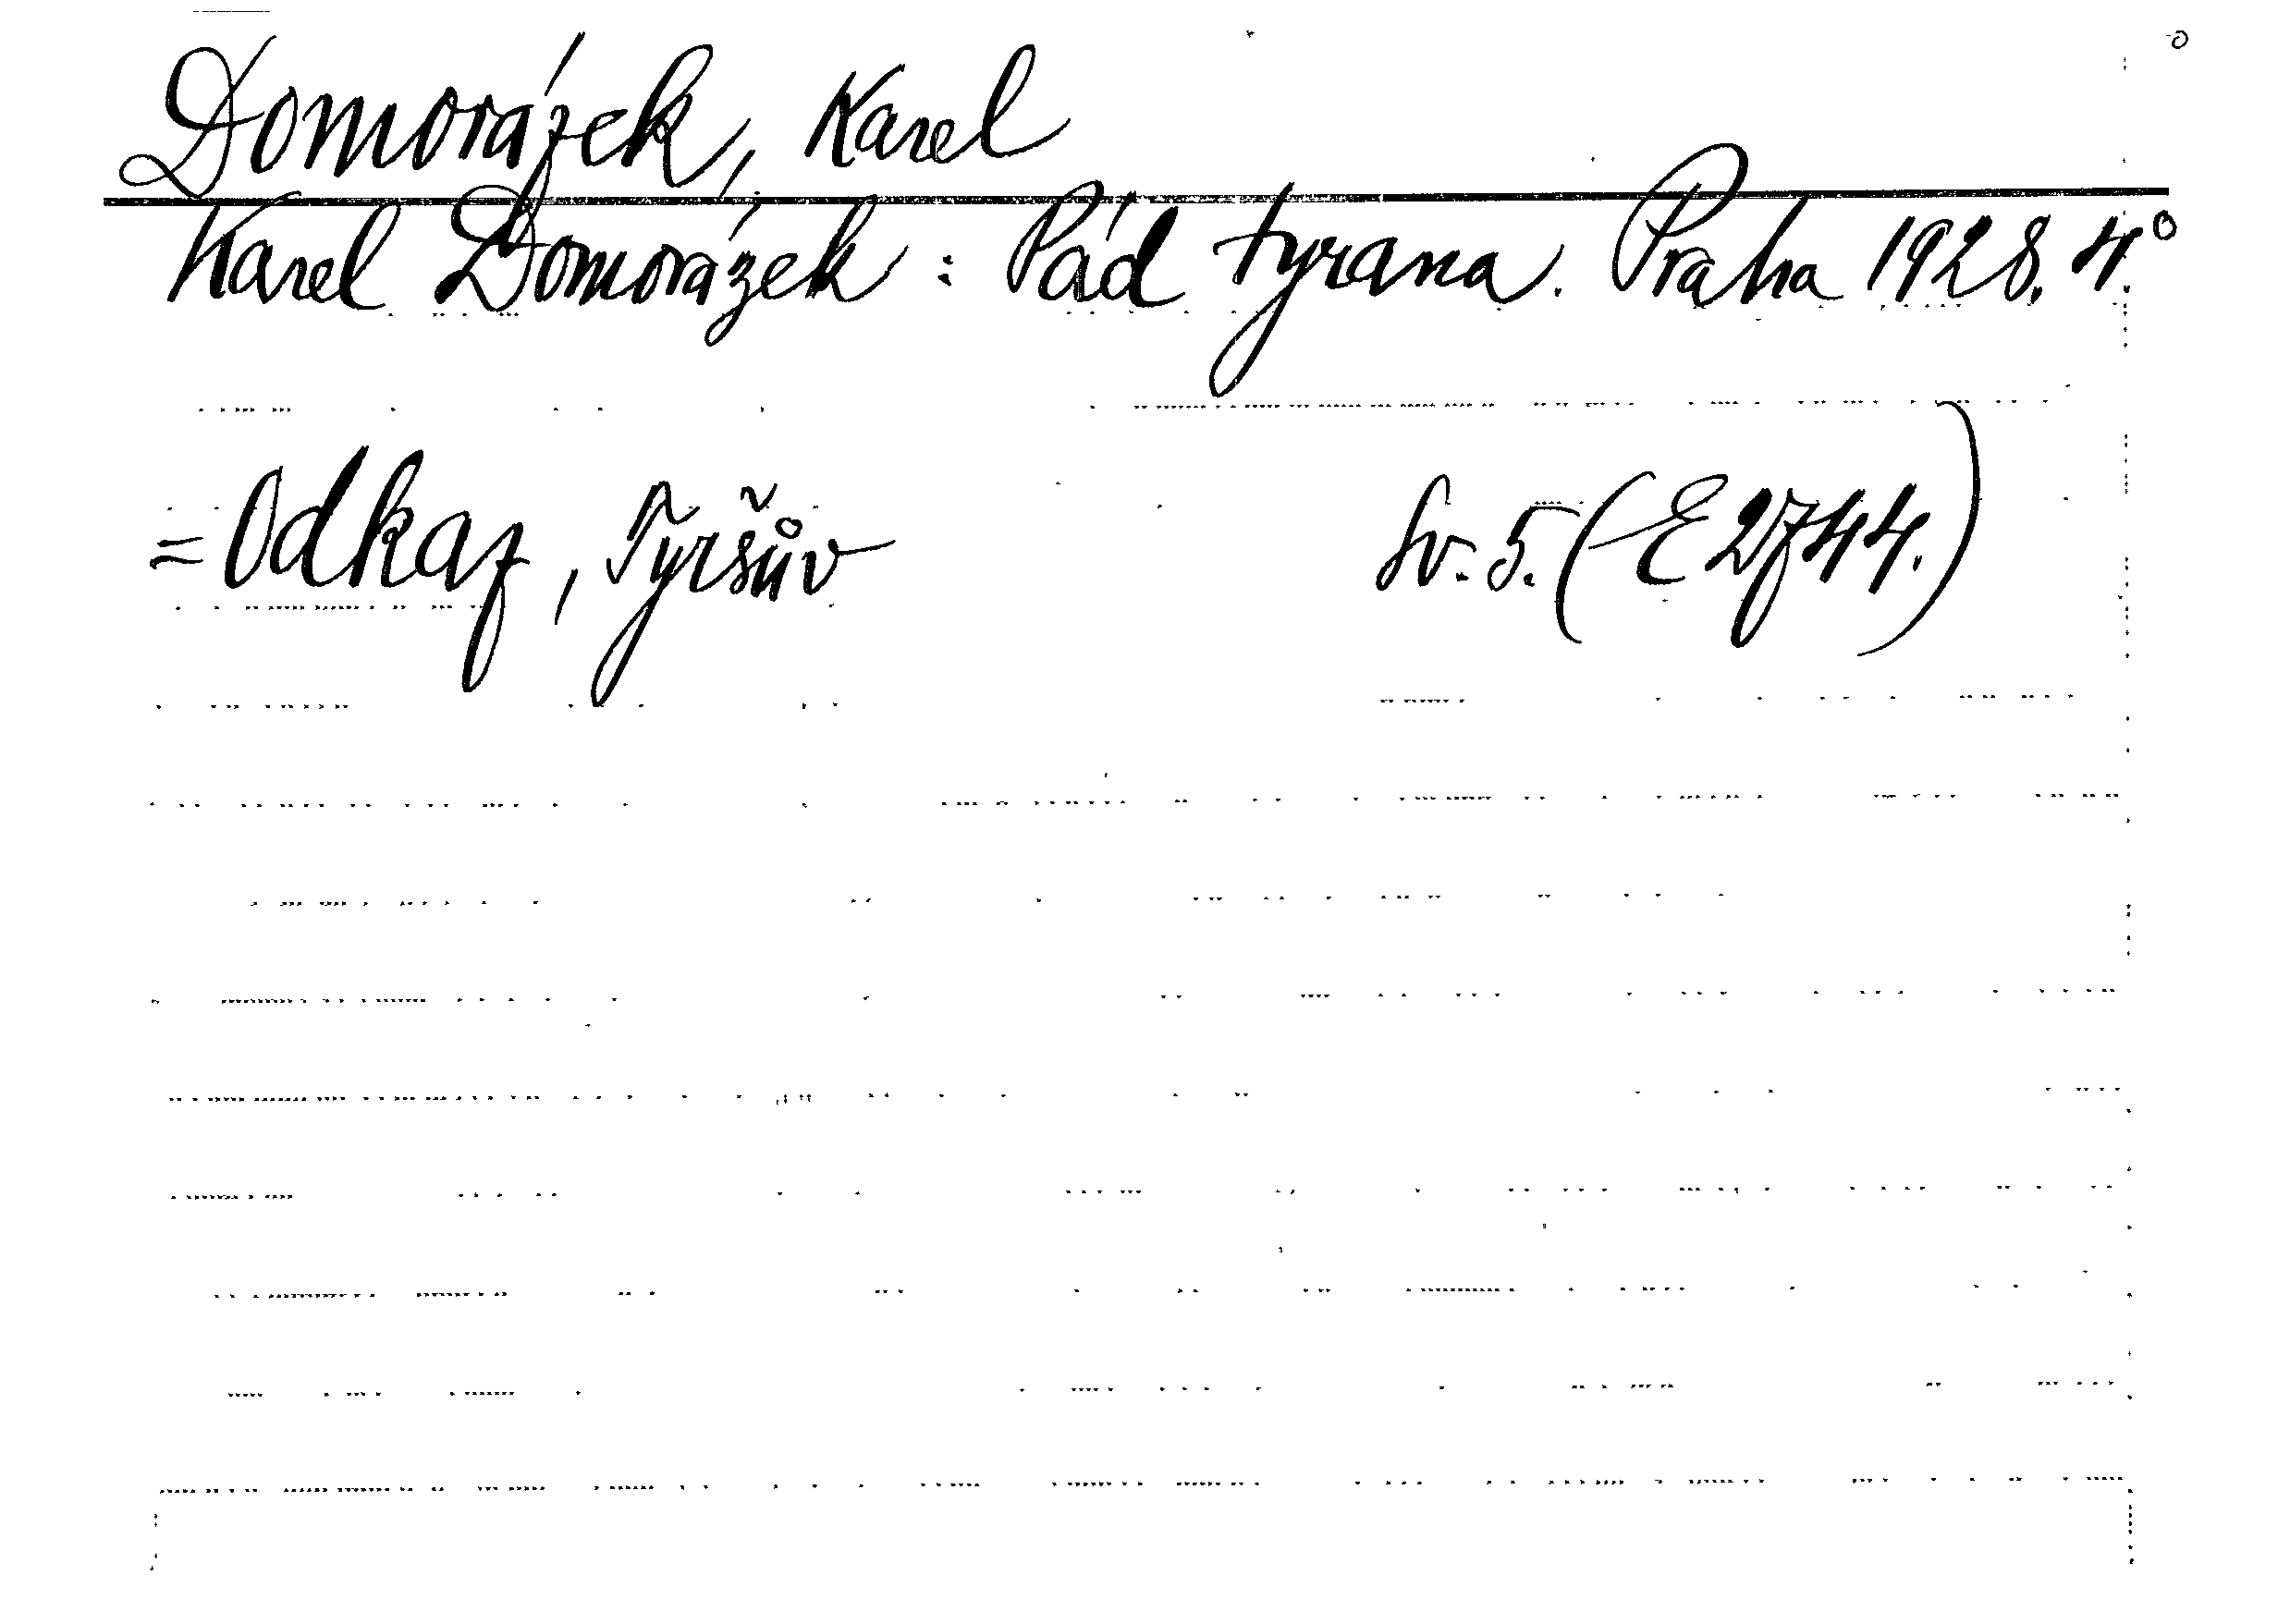 Domorázek, Karel
Karel Domorázek : Pád tyrana. Praha 1928. 4.°
= Odkaz, Tyršův Sv. 5. (E 2744.)